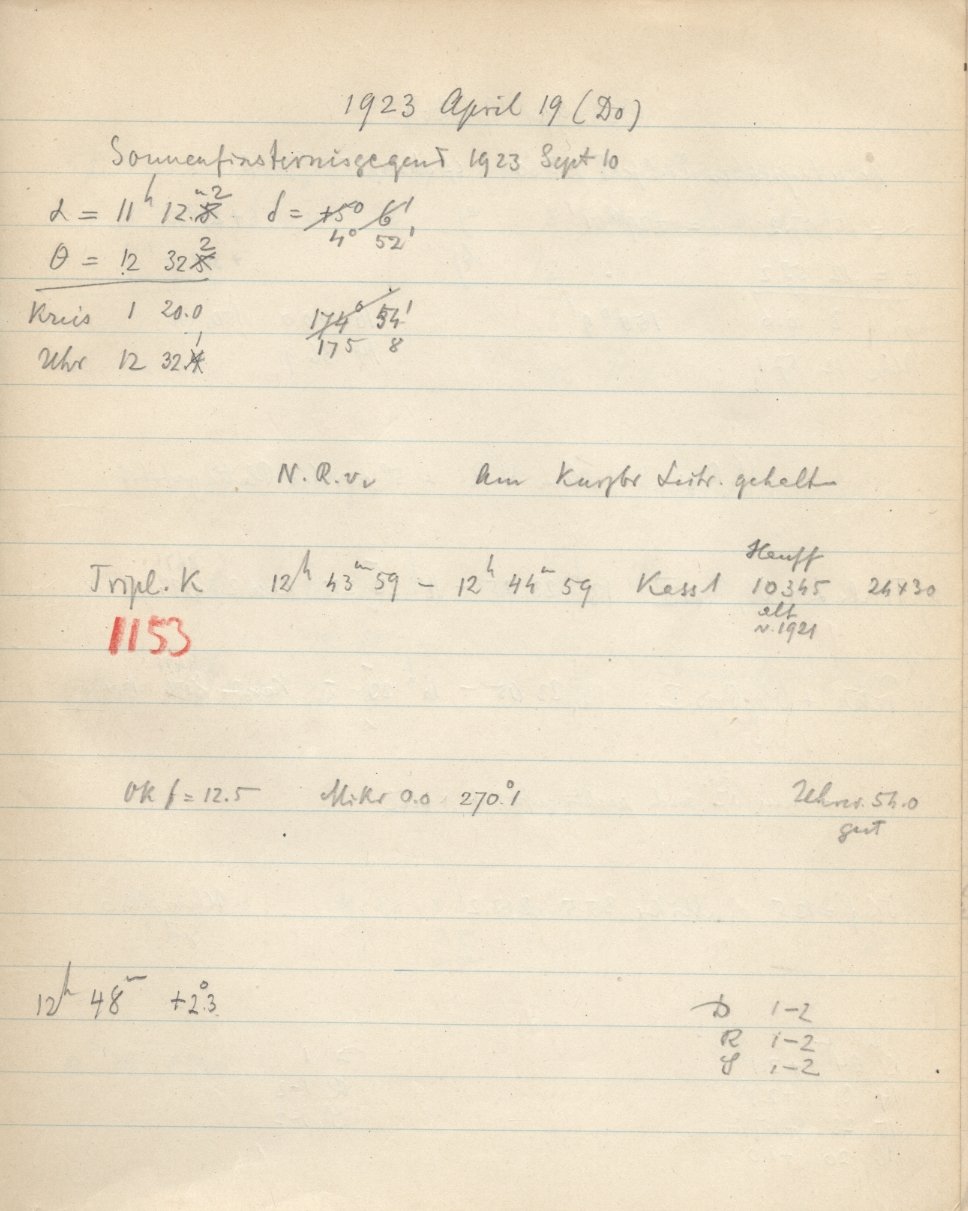 1923 April 19 (Do)
Sonnenfinsternisgegend 1923 Sept 10
α = 11ʰ 12.ᵐ2 δ = +5° 6'
4° 52'
θ = 12 32 2
Kreis 1 20.0 174° 54'
175 8
Uhr 12 32.1
N. R. v. Am Kurzbr Leitr. gehalt
Tripl. K 12ʰ 43ᵐ 59 – 12ʰ 44ᵐ 59 Kass 1 Hauff 10345 24x30
alt
v. 1921
1153
OK f = 12.5 Mikr 0.0 270.°1 Uhrw. 54.0
gut
12ʰ 48ᵐ +2.°3
D 1–2
R 1–2
S 1–2